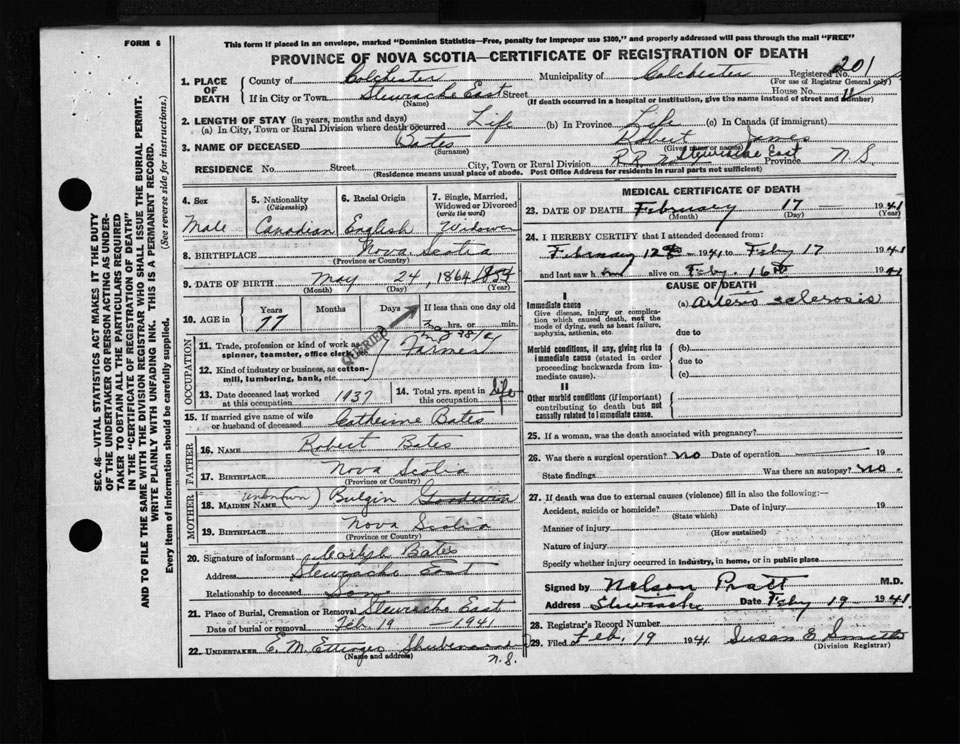 FORM 6
This form if placed in an envelope, marked "Dominion Statistics—Free, penalty for improper use $300," and properly addressed will pass through the mail "FREE"
PROVINCE OF NOVA SCOTIA—CERTIFICATE OF REGISTRATION OF DEATH
SEC. 46—VITAL STATISTICS ACT MAKES IT THE DUTY
OF THE UNDERTAKER OR PERSON ACTING AS UNDER-
TAKER TO OBTAIN ALL THE PARTICULARS REQUIRED
IN THE "CERTIFICATE OF REGISTRATION OF DEATH"
AND TO FILE THE SAME WITH THE DIVISION REGISTRAR WHO SHALL ISSUE THE BURIAL PERMIT.
WRITE PLAINLY WITH UNFADING INK. THIS IS A PERMANENT RECORD.
Every item of information should be carefully supplied. (See reverse side for instructions.)
1. PLACE OF DEATH County of Colchester Municipality of Colchester Registered No. 201
(For use of Registrar General only)
If in City or Town Stewiacke East Street House No. 11
(Name) (If death occurred in a hospital or institution, give the name instead of street and number)
2. LENGTH OF STAY (in years, months and days)
(a) In City, Town or Rural Division where death occurred Life (b) In Province Life (c) In Canada (if immigrant)
3. NAME OF DECEASED Bates Robert James
(Surname) (Given place or name)
RESIDENCE No. Street City, Town or Rural Division R.R. Stewiacke East Province N.S.
(Residence means usual place of abode. Post Office Address for residents in rural parts not sufficient)
4. Sex Male
5. Nationality (Citizenship) Canadian
6. Racial Origin English
7. Single, Married, Widowed or Divorced (write the word) Widower
8. BIRTHPLACE Nova Scotia
(Province or Country)
9. DATE OF BIRTH May 24, 1864
(Month) (Day) (Year)
10. AGE in Years 77 Months Days If less than one day old
hrs. or min.
QUERIED
OCCUPATION
11. Trade, profession or kind of work as spinner, teamster, office clerk, etc. Farmer
12. Kind of industry or business, as cotton-mill, lumbering, bank, etc.
13. Date deceased last worked at this occupation 1937
14. Total yrs. spent in this occupation Life
15. If married give name of wife or husband of deceased Catherine Bates
FATHER
16. NAME Robert Bates
17. BIRTHPLACE Nova Scotia
(Province or Country)
MOTHER
18. MAIDEN NAME (unknown) Bulgin
19. BIRTHPLACE Nova Scotia
(Province or Country)
20. Signature of informant Bates
Address Stewiacke East
Relationship to deceased Son
21. Place of Burial, Cremation or Removal Stewiacke East
Date of burial or removal Feb. 19 — 1941
22. UNDERTAKER E. M. Ettinger Shubenacadie N.S.
(Name and address)
MEDICAL CERTIFICATE OF DEATH
23. DATE OF DEATH February 17 — 1941
(Month) (Day) (Year)
24. I HEREBY CERTIFY that I attended deceased from:
February 12th — 1941 to Feby 17 1941
and last saw h im alive on Feby. 16th 1941
CAUSE OF DEATH
I
Immediate cause
Give disease, injury or complication which caused death, not the mode of dying, such as heart failure, asphyxia, asthenia, etc.
(a) Arterio sclerosis
due to
Morbid conditions, if any, giving rise to immediate cause (stated in order proceeding backwards from immediate cause).
(b)
due to
(c)
II
Other morbid conditions (if important) contributing to death but not causally related to immediate cause.
25. If a woman, was the death associated with pregnancy?
26. Was there a surgical operation? No Date of operation 19
State findings Was there an autopsy? No.
27. If death was due to external causes (violence) fill in also the following:—
Accident, suicide or homicide? Date of injury 19
(State which)
Manner of injury
(How sustained)
Nature of injury
Specify whether injury occurred in industry, in home, or in public place
Signed by Nelson Pratt M.D.
Address Stewiacke Date Feby 19 1941
28. Registrar's Record Number
29. Filed Feb. 19 1941 Susan E. Smith
(Division Registrar)